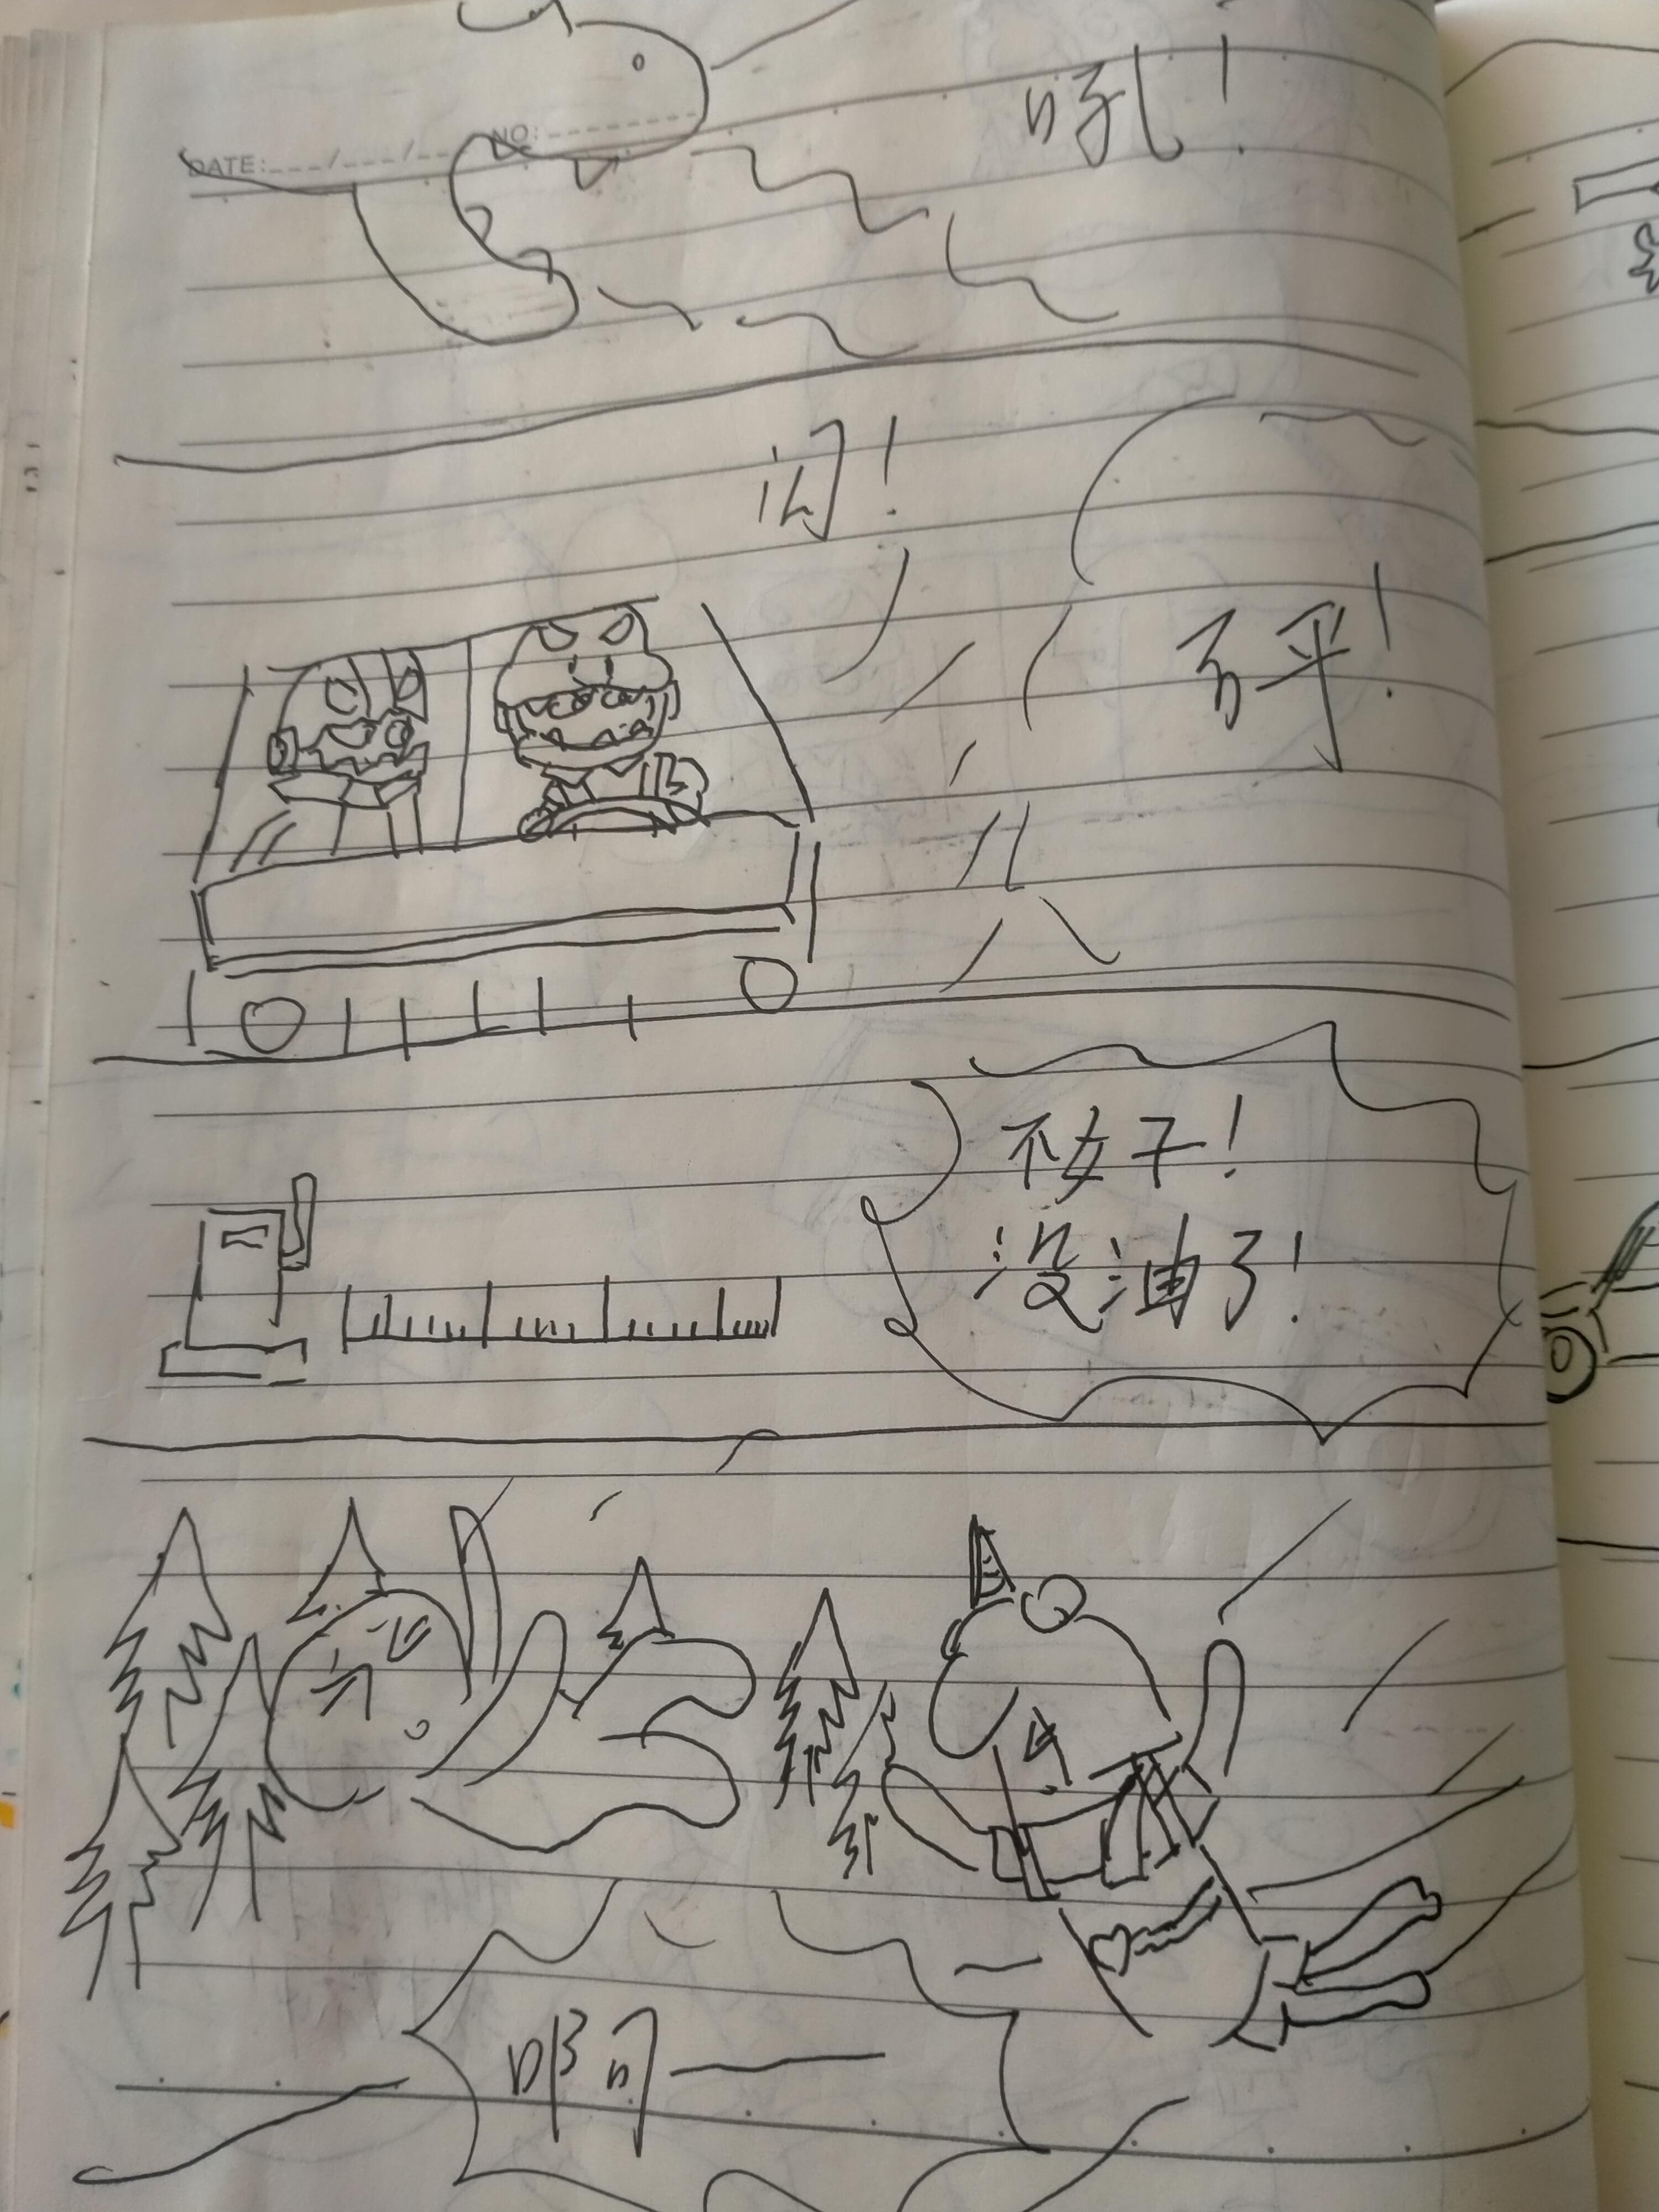 DATE: / / NO:
吼!
闪!
不好!
没油了!
啊——